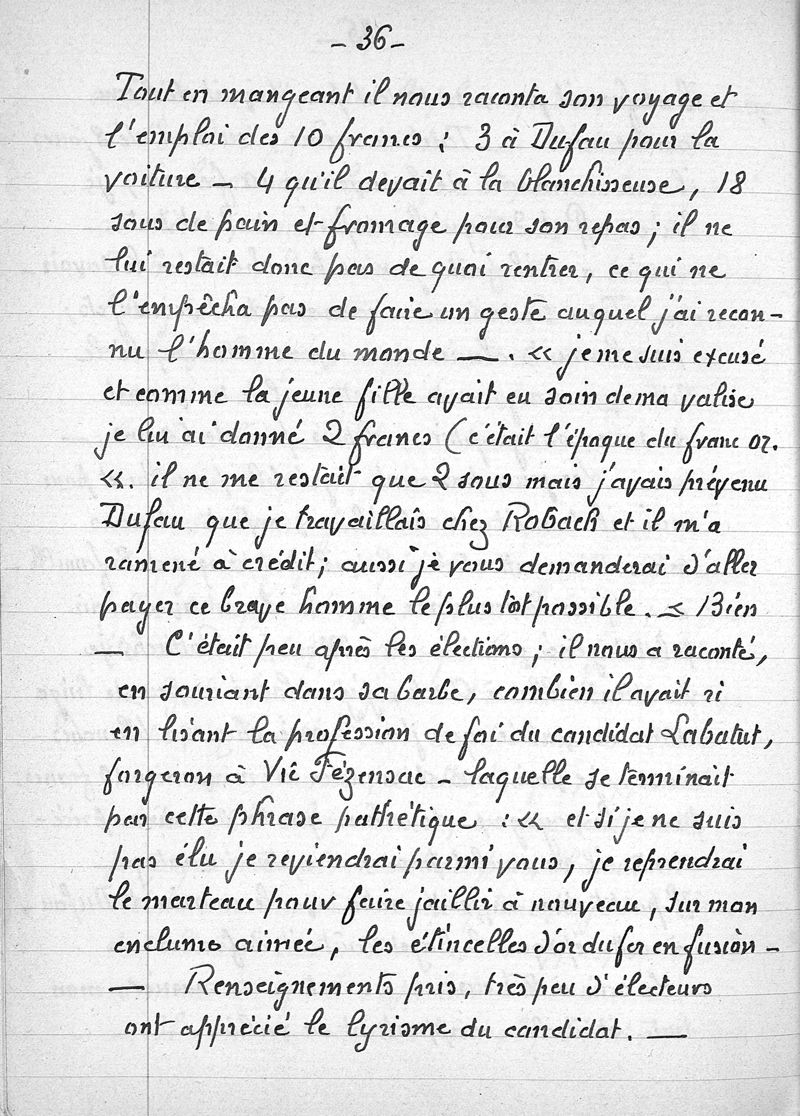 - 36 -
Tout en mangeant il nous raconta son voyage et
l'emploi des 10 francs : 3 à Dufau pour la
voiture - 4 qu'il devait à la blanchisseuse, 18
sous de pain et fromage pour son repas ; il ne
lui restait donc pas de quoi rentrer, ce qui ne
l'empêcha pas de faire un geste auquel j'ai recon-
nu l'homme du monde —. « je me suis excusé
et comme la jeune fille avait eu soin de ma valise
je lui ai donné 2 francs (c'était l'époque du franc or.
«. il ne me restait que 2 sous mais j'avais prévenu
Dufau que je travaillais chez Robach et il m'a
ramené à crédit ; aussi je vous demanderai d'aller
payer ce brave homme le plus tôt possible. < Bien
— C'était peu après les élections ; il nous a raconté,
en souriant dans sa barbe, combien il avait ri
en lisant la profession de foi du candidat Labatut,
forgeron à Vic Fézensac - laquelle se terminait
par cette phrase pathétique : « et si je ne suis
pas élu je reviendrai parmi vous, je reprendrai
le marteau pour faire jaillir à nouveau, sur mon
enclume aimée, les étincelles d'or du fer en fusion -
— Renseignements pris, très peu d'électeurs
ont apprécié le lyrisme du candidat. —